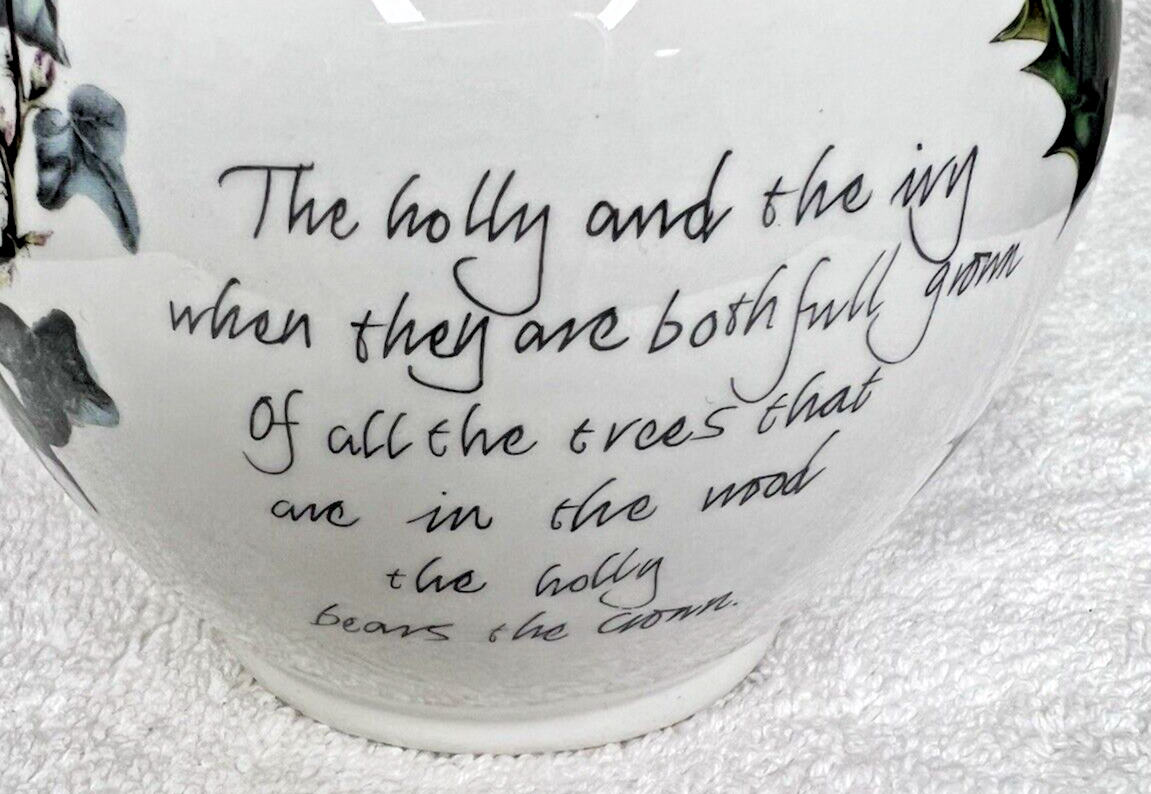 The holly and the ivy
when they are both full grown
Of all the trees that
are in the wood
the holly
bears the crown.